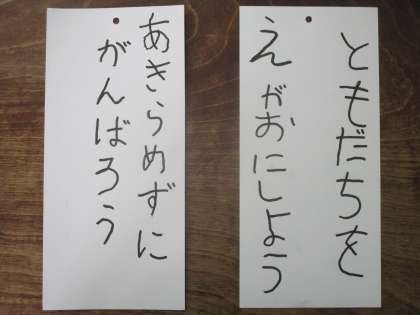 あきらめずに
がんばろう
ともだちを
えがおにしよう